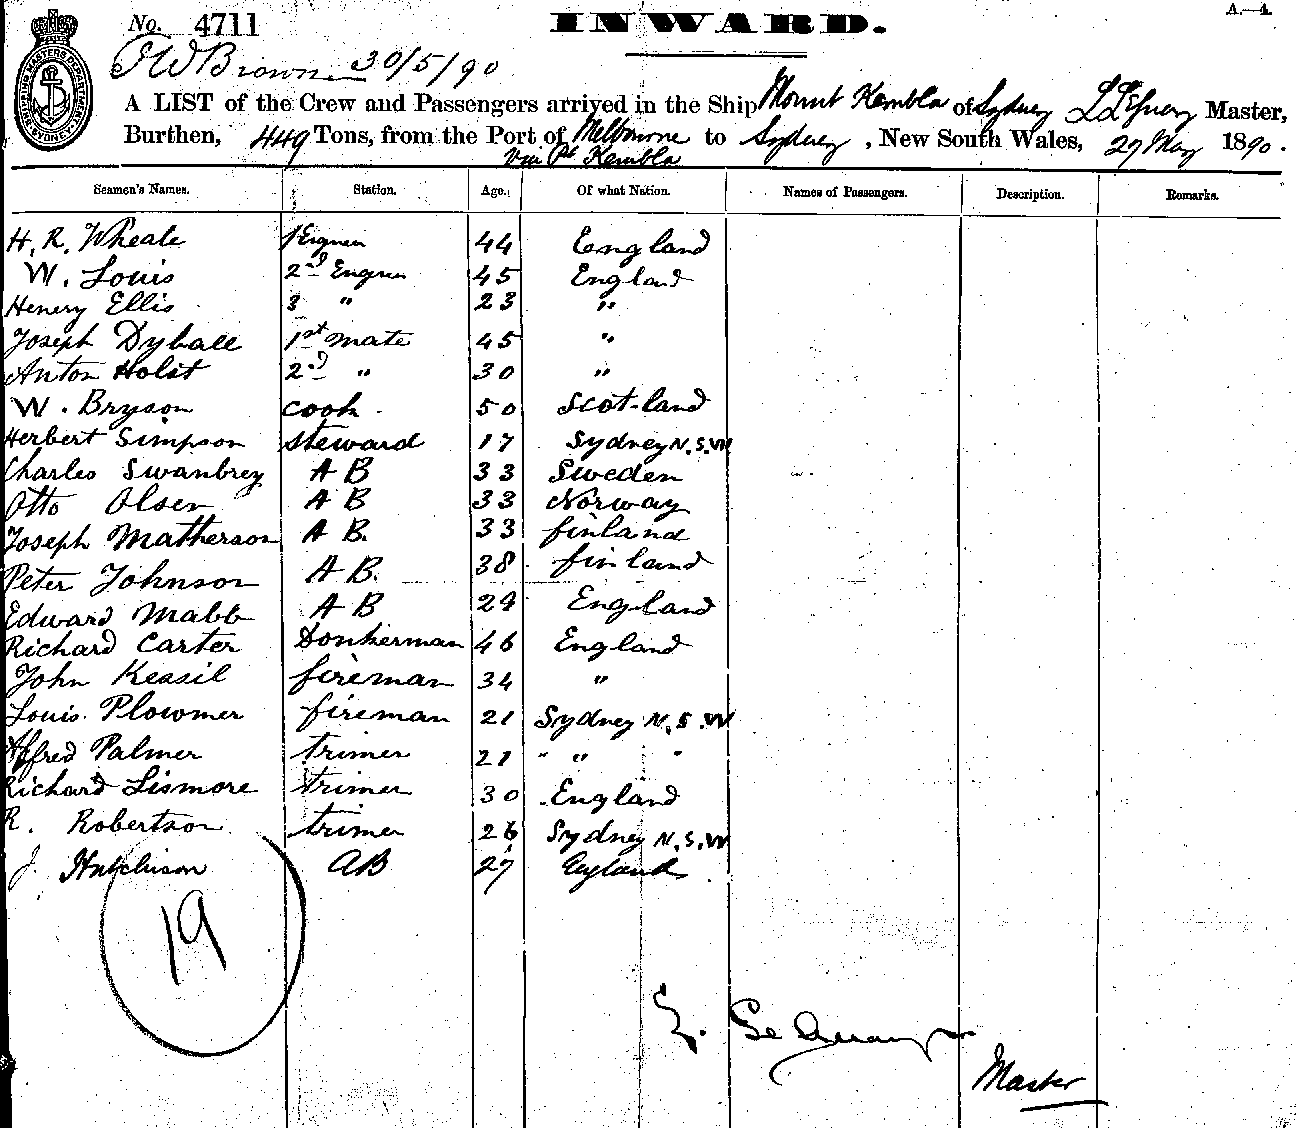 No. 4711
INWARD.
A.—4.
SHIPPING MASTERS DEPARTMENT SYDNEY
J W Brown 30/5/90
A LIST of the Crew and Passengers arrived in the Ship Mount Kembla of Sydney Master,
Burthen, 449 Tons, from the Port of Melbourne to Sydney, New South Wales, 27 May 1890.
via Pt Kembla
Seamen's Names. Station. Age. Of what Nation. Names of Passengers. Description. Remarks.
H. R. Wheale 1 Engineer 44 England
W. Louis 2nd Engineer 45 England
Henery Ellis 3 " 23 "
Joseph Dyball 1st mate 45 "
Anton Holst 2nd " 30 "
W. Bryson cook 50 Scotland
Herbert Simpson steward 17 Sydney N.S.W
Charles Swanbrey A B 33 Sweden
Otto Olsen A B 33 Norway
Joseph Matherson A B. 33 finland
Peter Johnson A B. 38 finland
Edward Mabb A B 24 England
Richard Carter Donkerman 46 England
John Keasil fireman 34 "
Louis Plowmer fireman 21 Sydney N.S.W
Alfred Palmer trimer 21 " " "
Richard Lismore trimer 30 England
R. Robertson trimer 26 Sydney N.S.W
J. Hutchison AB 27 England
19
Master